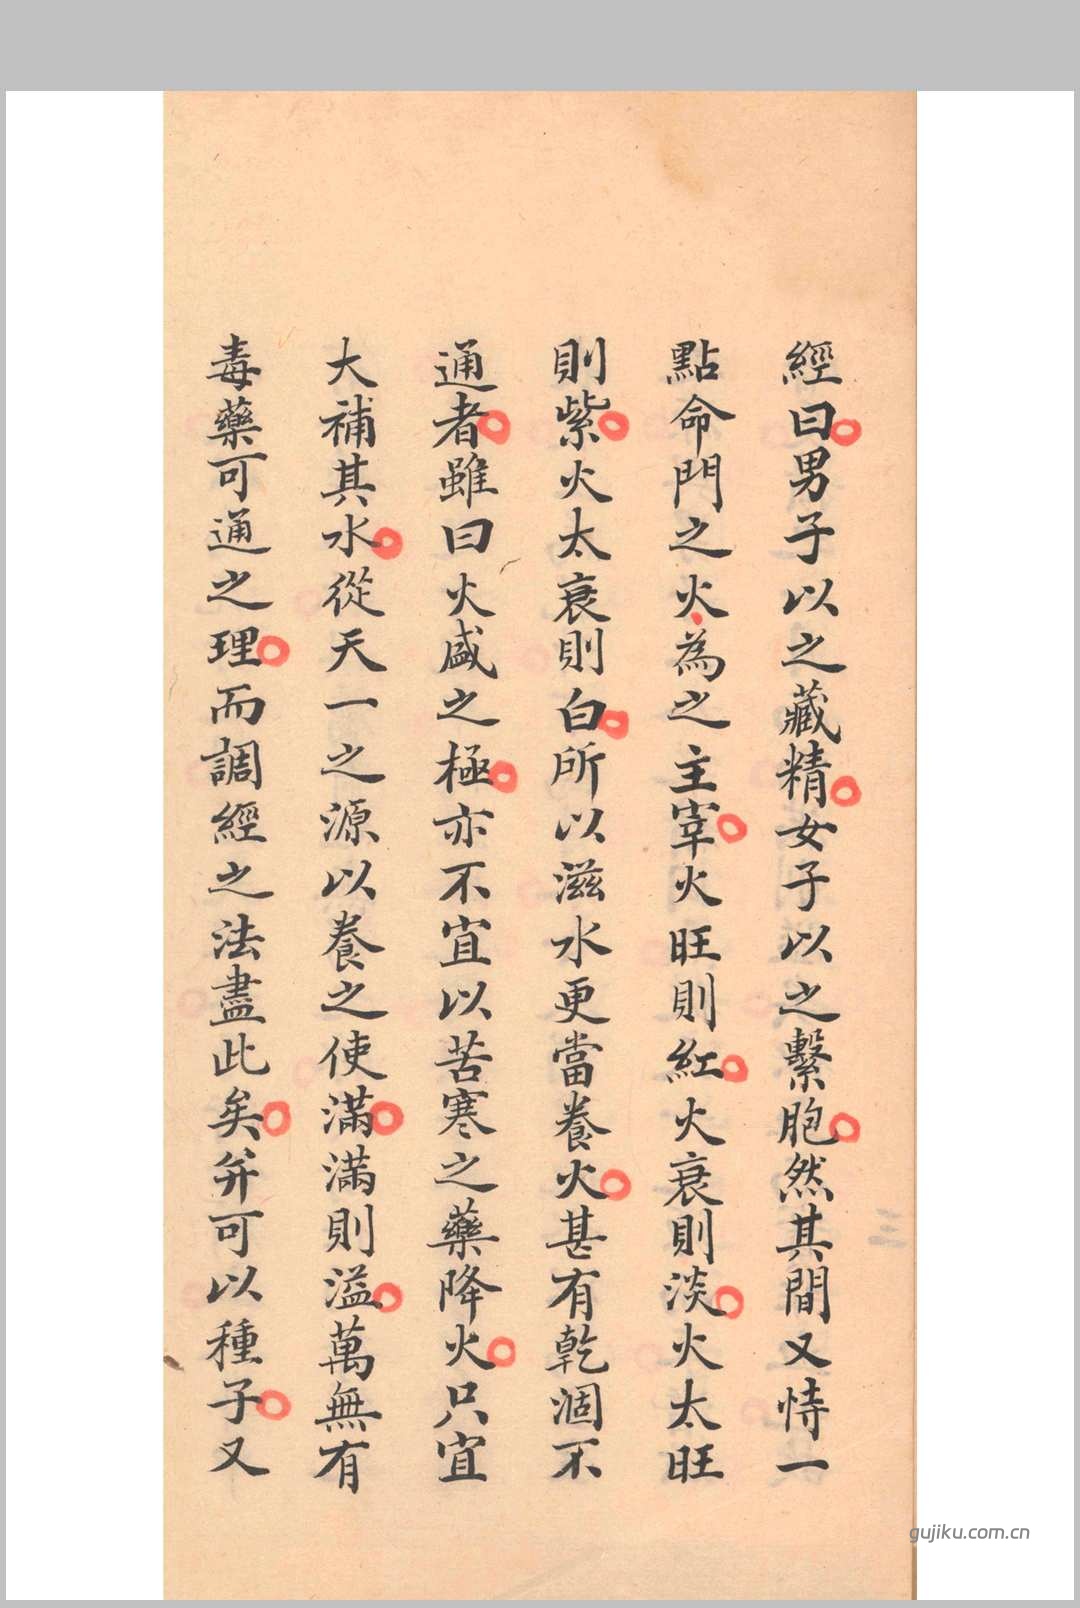 經曰男子以之藏精女子以之繫胞然其間又恃一
點命門之火為之主宰火旺則紅火衰則淡火太旺
則紫火太衰則白所以滋水更當養火甚有乾涸不
通者雖曰火盛之極亦不宜以苦寒之藥降火只宜
大補其水從天一之源以養之使滿滿則溢萬無有
毒藥可通之理而調經之法盡此矣并可以種子又
三
gujiku.com.cn